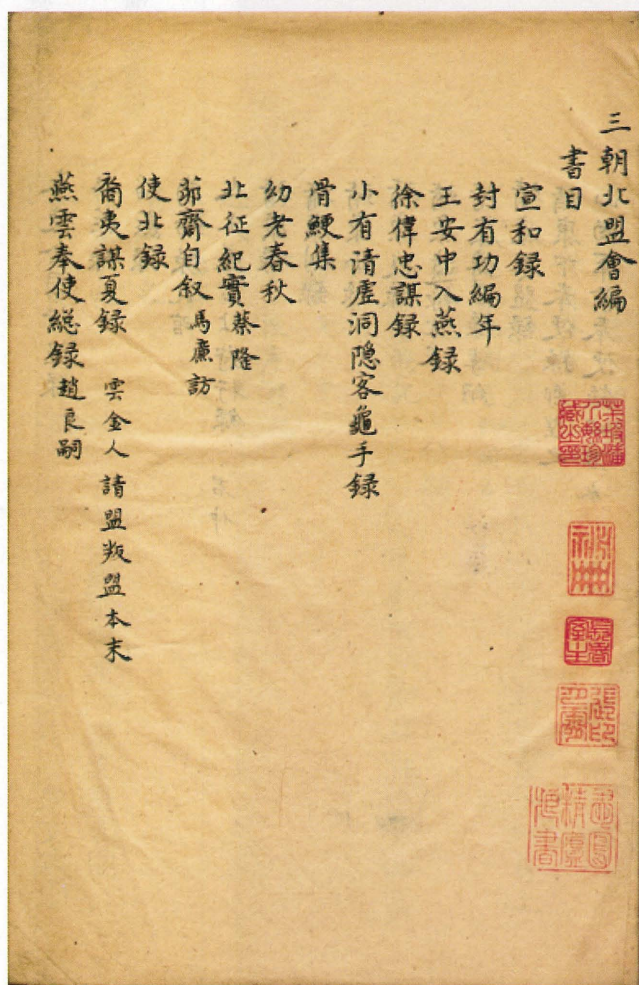 三朝北盟會編
書目
宣和録
封有功編年
王安中入燕録
徐偉忠謀録
小有清虛洞隐客龜手録
骨鯁集
幼老春秋
北征紀實蔡隆
茆齋自叙馬廉訪
使北録
裔夷謀夏録 雲金人請盟叛盟本末
燕雲奉使緫録趙良嗣